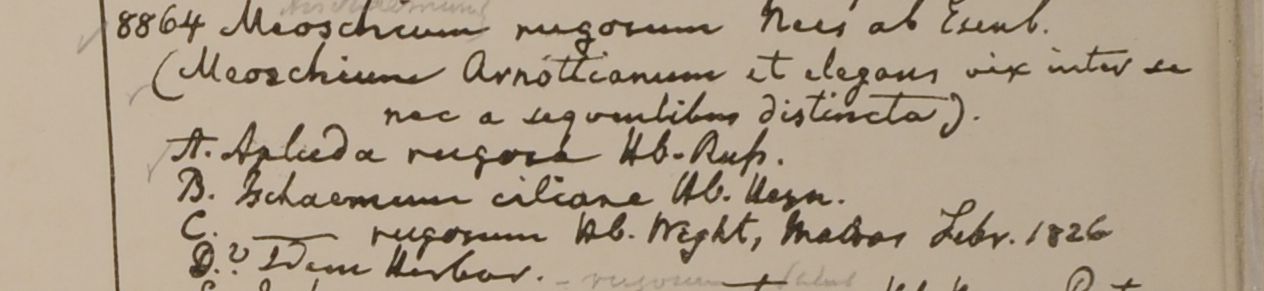 8864 Meoschium rugosum Nees ab Esenb.
(Meoschium Arnottianum et elegans vix inter se
nec a seqventibus distincta).
A. Apluda rugosa Hb. Russ.
B. Ischaemum ciliare Hb. Heyn.
C. —— rugosum Hb. Wight, Madras Febr. 1826
D.? Idem Herbar. - rugosum